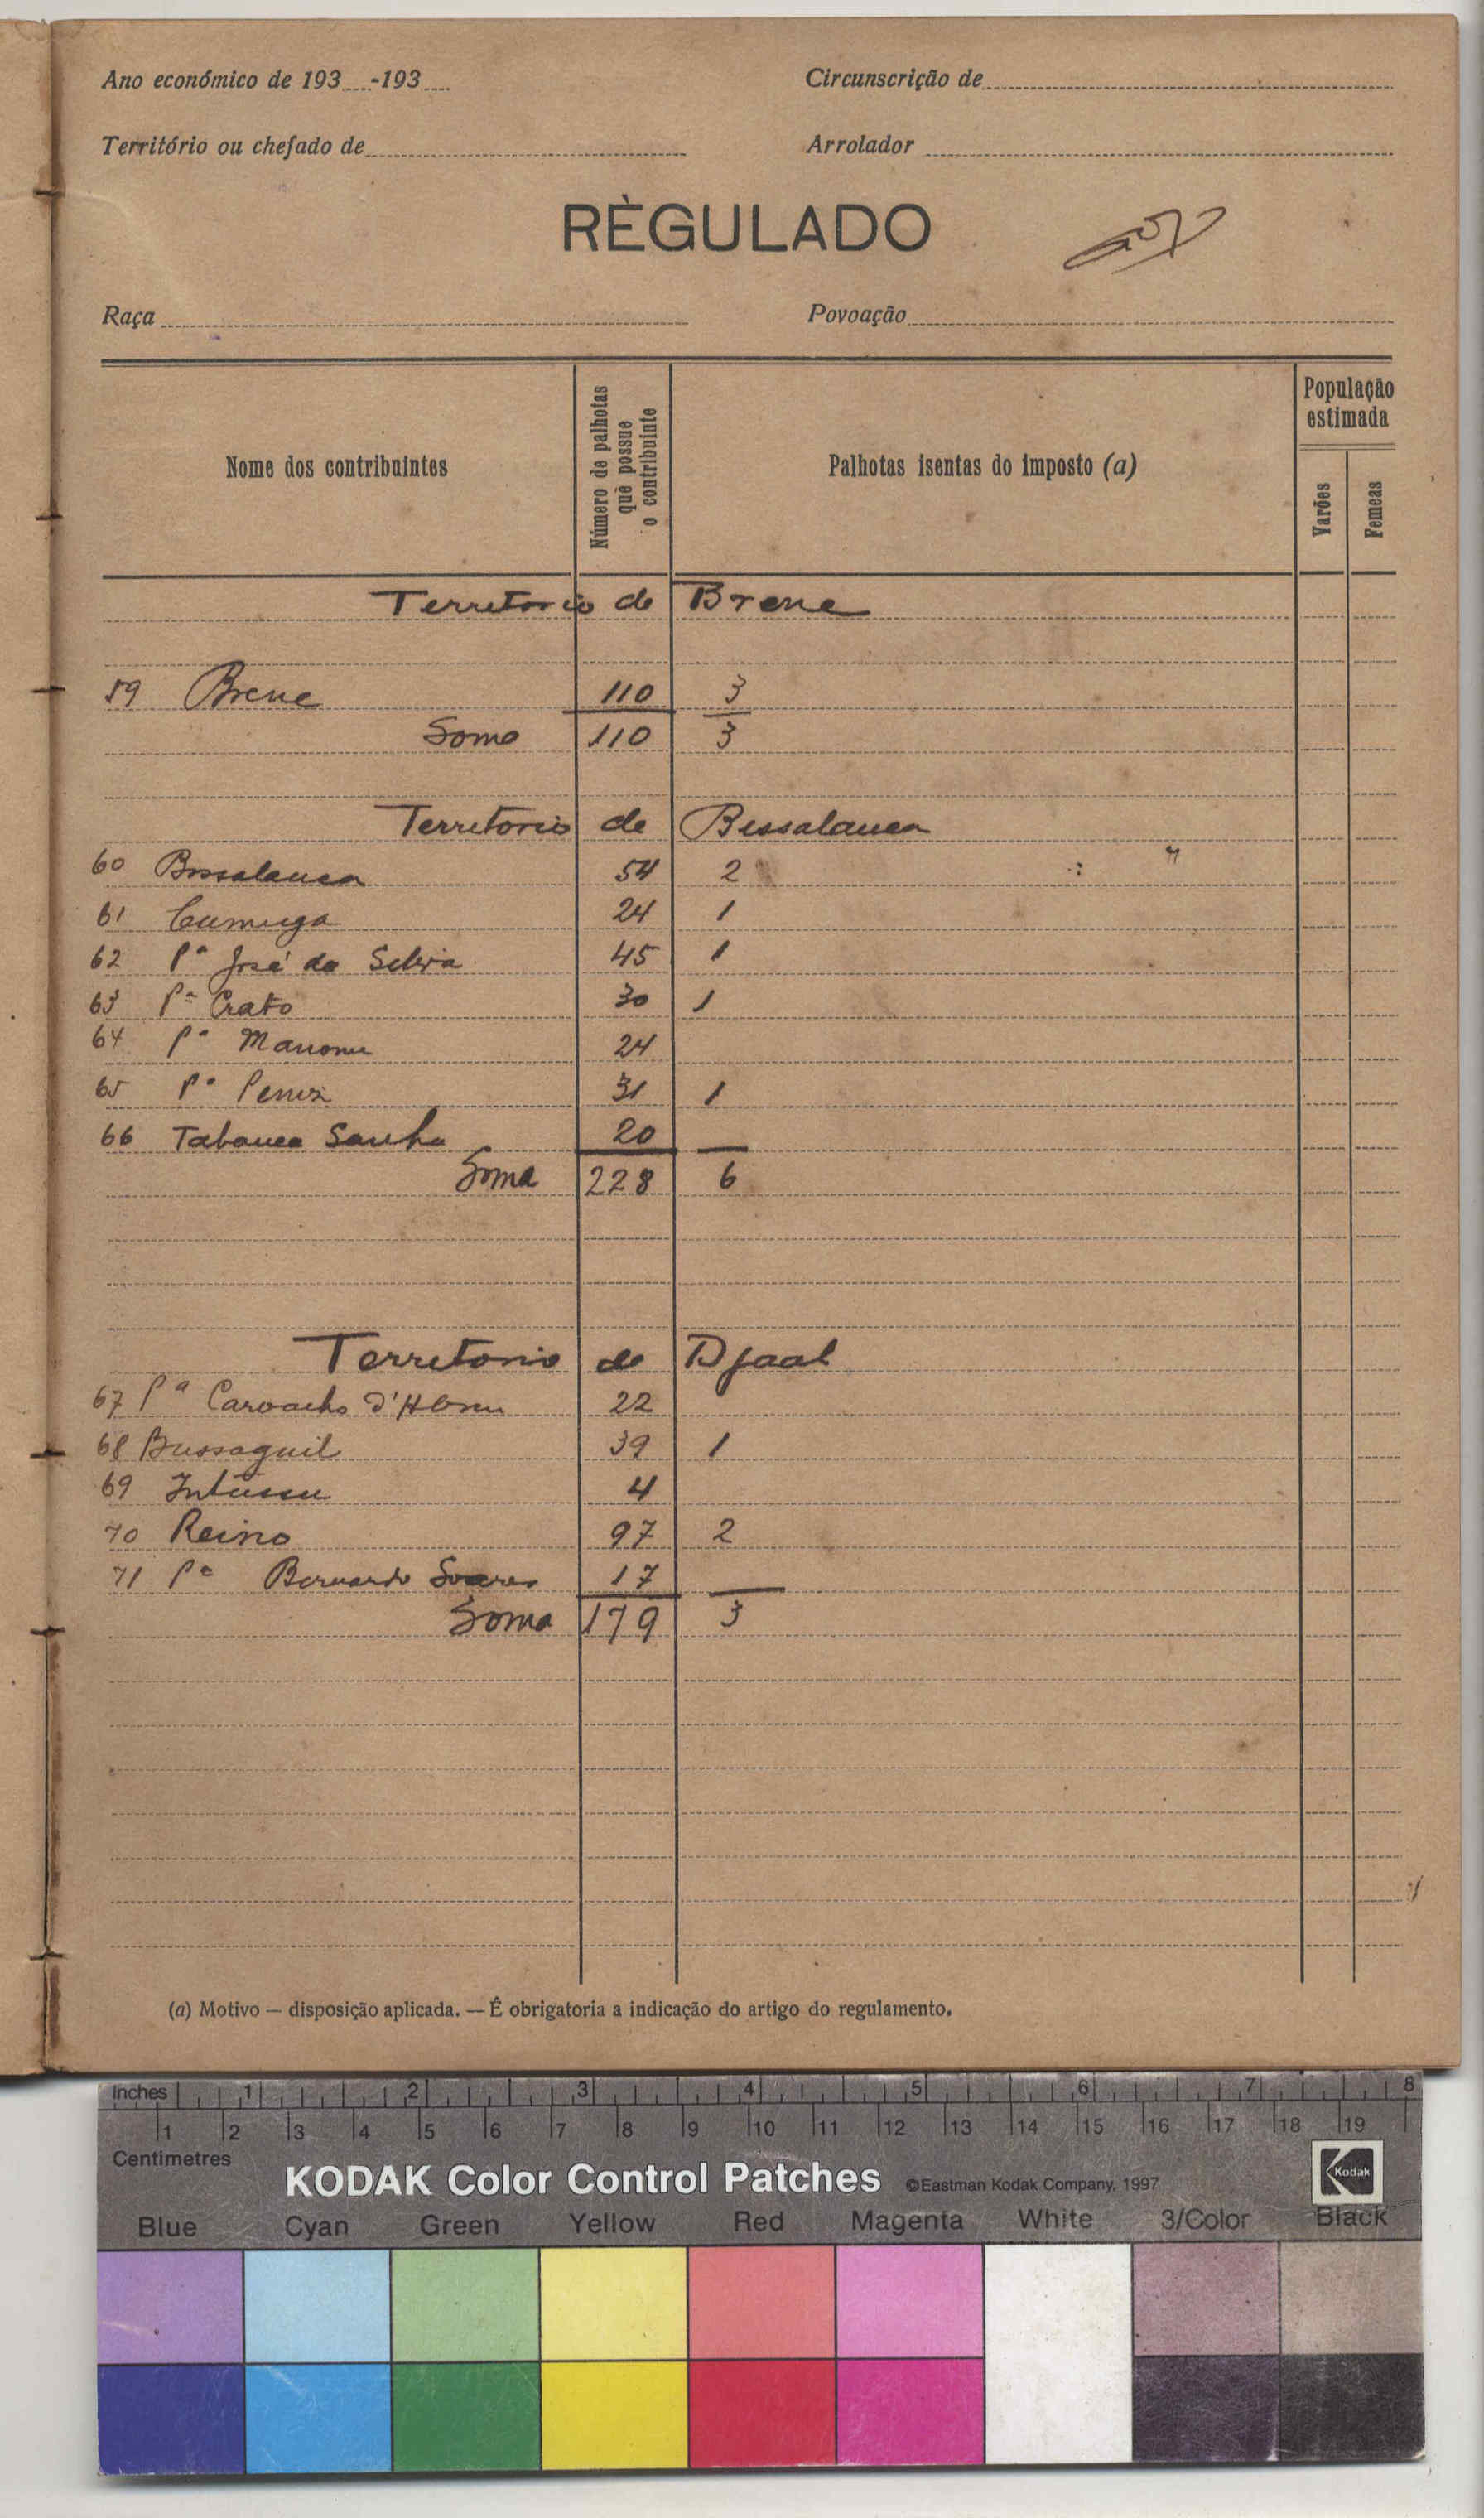 Ano económico de 193 -193
Circunscrição de
Território ou chefado de
Arrolador
RÈGULADO
Raça
Povoação
Nome dos contribuintes
Número de palhotas quê possue o contribuinte
Palhotas isentas do imposto (a)
População estimada
Varões
Femeas
Territorio de Brene
59 Brene 110 3
Soma 110 3
Territorio de Bissalanca
60 Bissalanca 54 2
61 Cumuga 24 1
62 Pª José da Selva 45 1
63 Pª Crato 30 1
64 Pª 24
65 Pª 31 1
66 Tabanca Sanha 20
Soma 228 6
Territorio de Djaal
67 Pª Carvalho d' 22
68 Bussaguil 39 1
69 Intussu 4
70 Reino 97 2
71 Pª Bernardo Soares 17
Soma 179 3
(a) Motivo — disposição aplicada. — É obrigatoria a indicação do artigo do regulamento.
Inches 1 2 3 4 5 6 7 8
1 2 3 4 5 6 7 8 9 10 11 12 13 14 15 16 17 18 19
Centimetres
KODAK Color Control Patches ©Eastman Kodak Company, 1997 Kodak
Blue Cyan Green Yellow Red Magenta White 3/Color Black